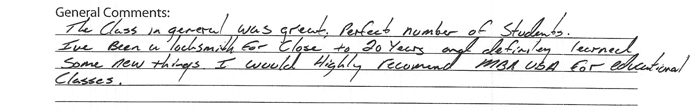 General Comments:
The Class in general was great, Perfect number of Students.
Ive Been a locksmith For Close to 20 Years and definley learned
Some new things I would Highly recomend MBA USA For educational
Classes.